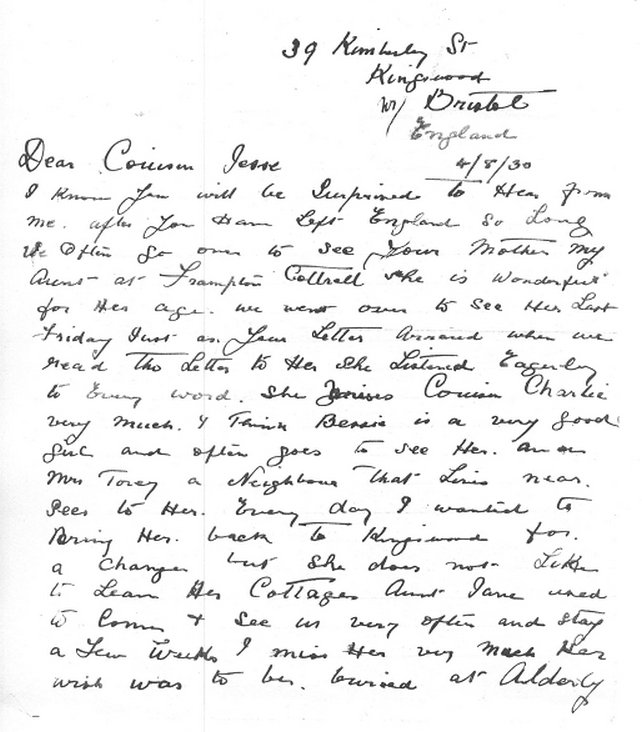 39 Kimberley St
Kingswood
Nr/ Bristol
England
4/8/30
Dear Cousin Jesse
I know you will be Surprised to Hear from
me. after you Have Left England So Long
We Often Go over to see your Mother My
Aunt at Frampton Cottrell She is Wonderful
for Her age. we went over to see Her Last
Friday Just as your Letter Arrived when we
read the Letter to Her She Listened Eagerly
to Every word. She Misses Cousin Charlie
very much. I Think Bessie is a very good
girl and often goes to see Her.
Mrs a Neighbour that Lives near.
Sees to Her. Every day I wanted to
Bring Her. back to Kingswood for.
a change but She does not Like
to Leave Her Cottage Aunt Jane used
to Come & See us very often and stay
a Few Weeks I miss Her very Much Her
wish was to be. buried at Alderly